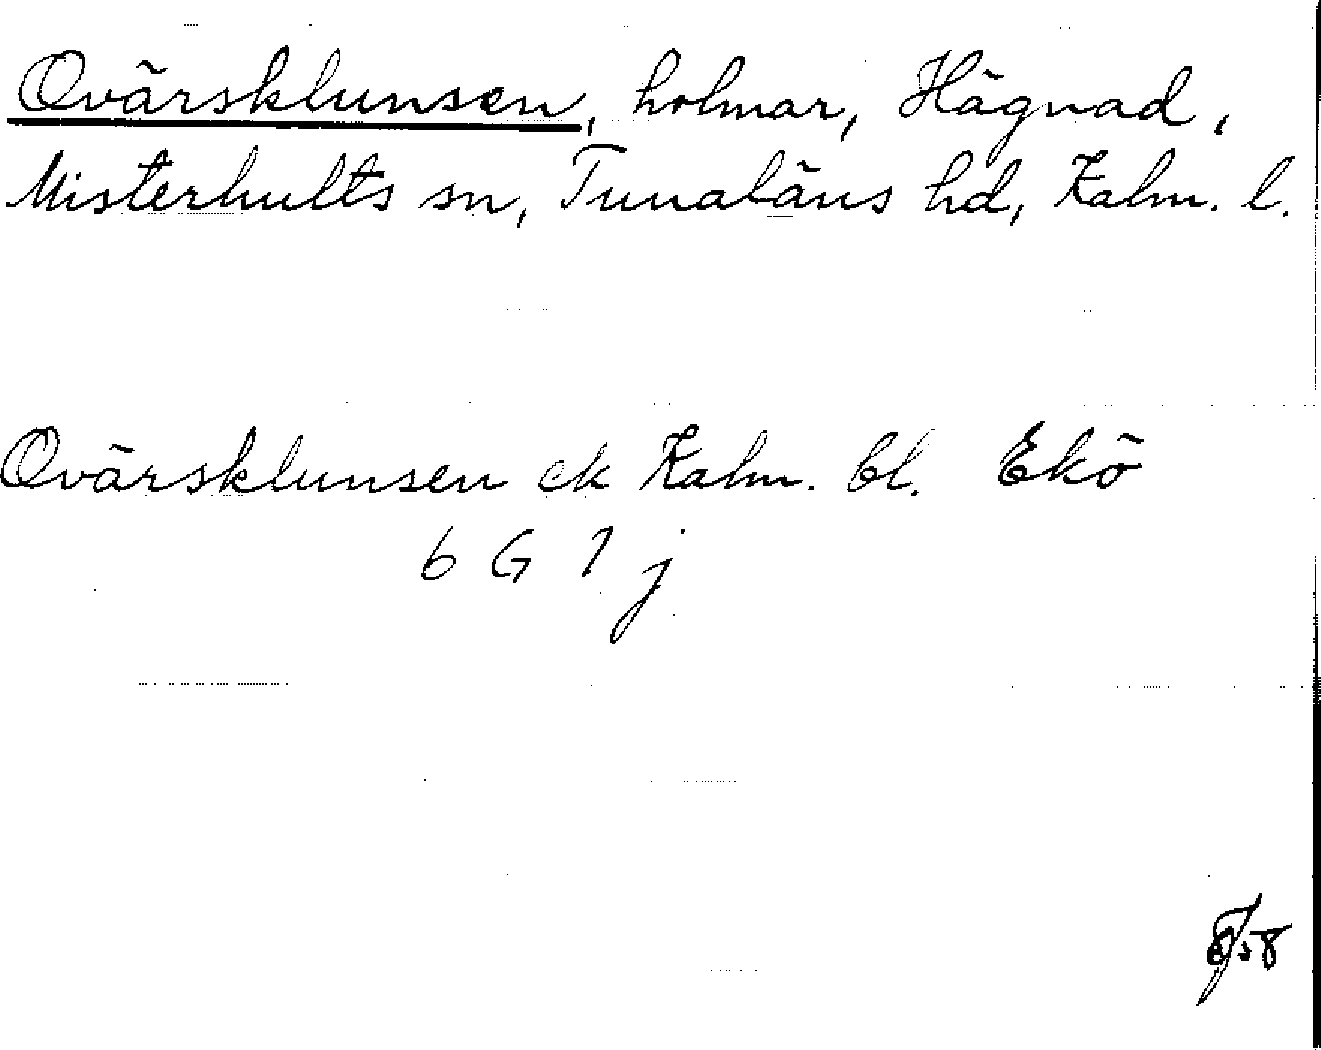 Qvärsklunsen, holmar, Hägnad,
Misterhults sn, Tunaläns hd, Kalm. l.
Qvärsklunsen ek Kalm. bl. Ekö
6 G 7 j